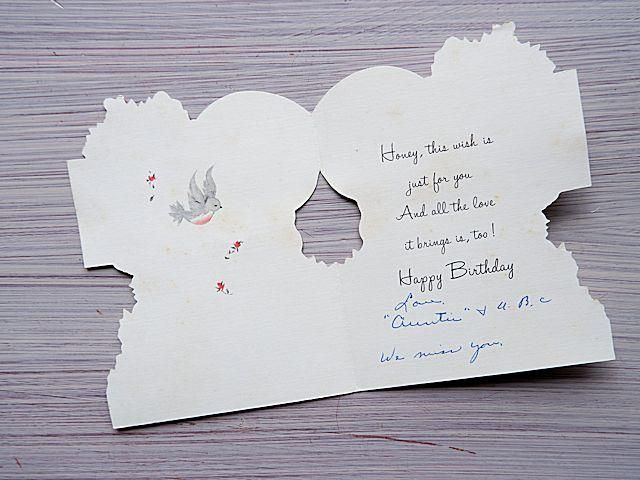 Honey, this wish is
just for you
And all the love
it brings is, too!
Happy Birthday
Love,
"Auntie" & U. B. C
We miss you.